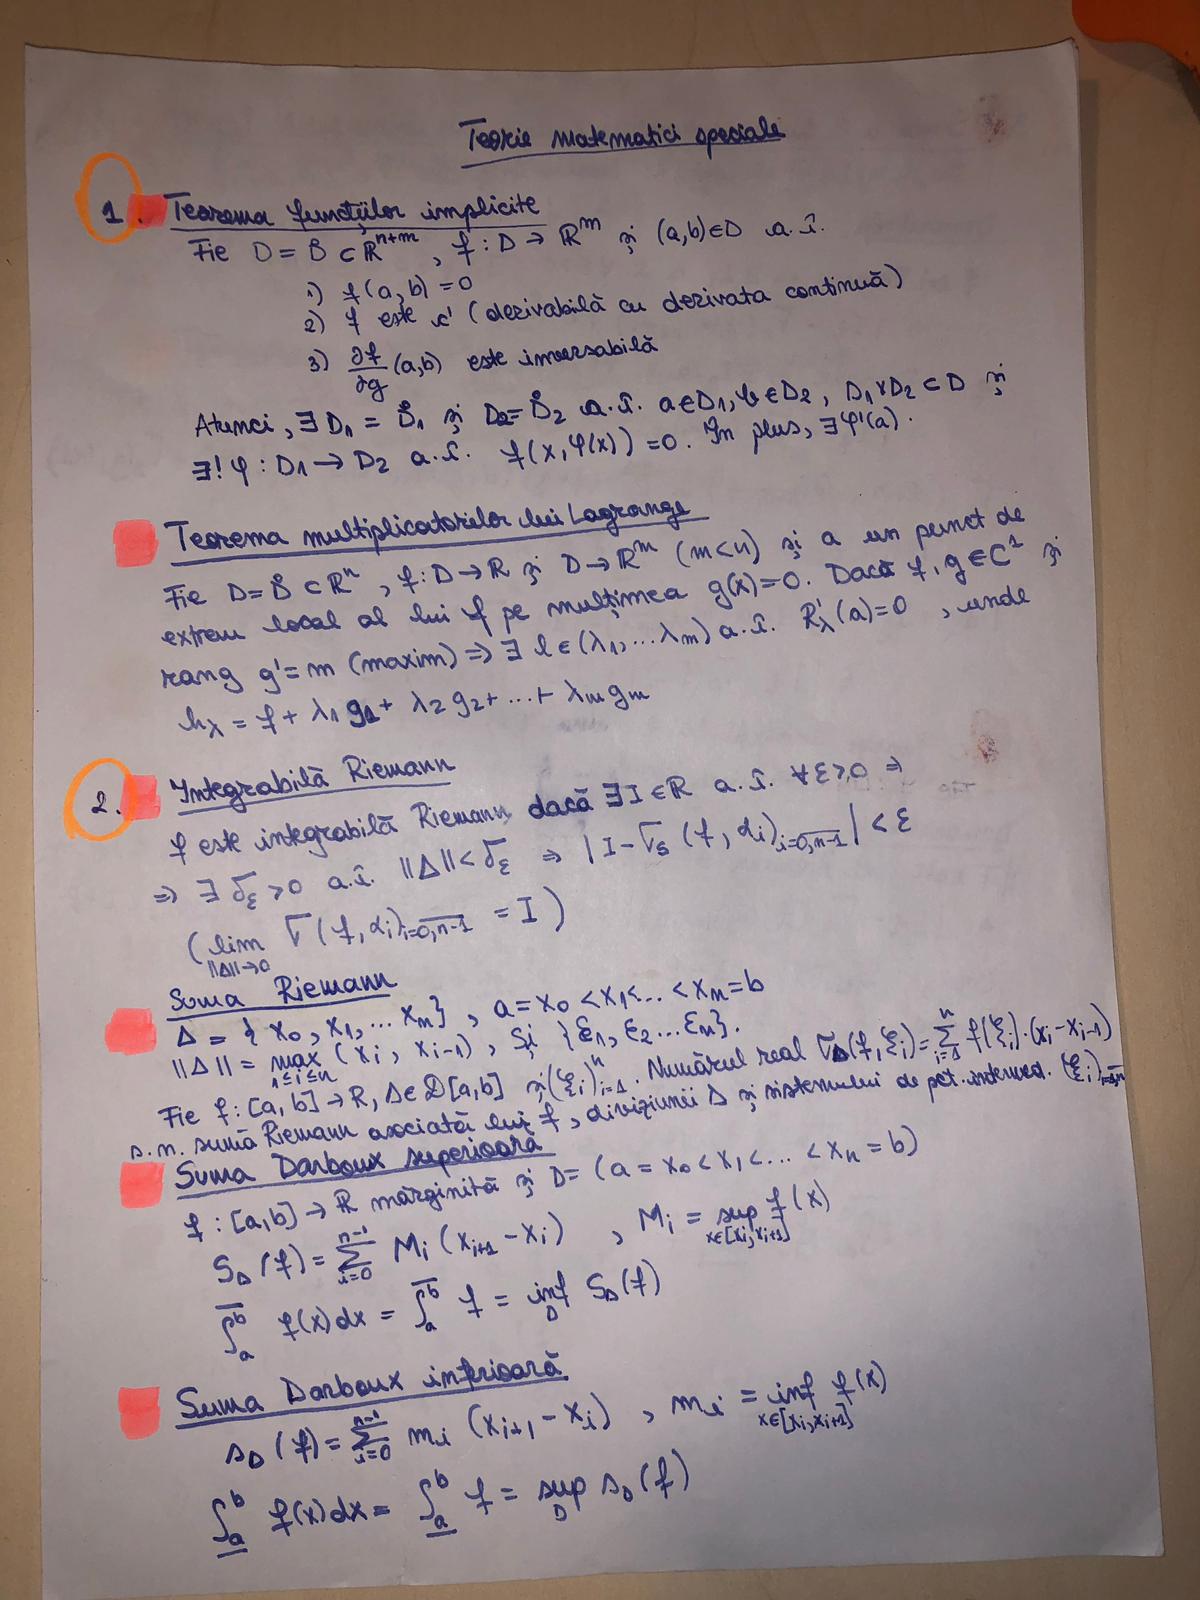 Teorie matematici speciale
1. Teorema funcțiilor implicite
Fie D = D̊ ⊂ ℝⁿ⁺ᵐ, f : D → ℝᵐ și (a,b) ∈ D a.î.
1) f(a,b) = 0
2) f este c' (derivabilă cu derivata continuă)
3) ∂f/∂g (a,b) este inversabilă
Atunci, ∃ D₁ = D̊₁ și D₂ = D̊₂ a.î. a ∈ D₁, b ∈ D₂, D₁×D₂ ⊂ D și
∃! φ : D₁ → D₂ a.î. f(x, φ(x)) = 0. În plus, ∃ φ'(a).
Teorema multiplicatorilor lui Lagrange
Fie D = D̊ ⊂ ℝⁿ, f : D → ℝ și D → ℝᵐ (m < n) și a un punct de
extrem local al lui f pe mulțimea g(x) = 0. Dacă f, g ∈ C¹ și
rang g' = m (maxim) ⇒ ∃ l ∈ (λ₁, ... λₘ) a.î. h'_λ(a) = 0, unde
h_λ = f + λ₁g₁ + λ₂g₂ + ... + λₘgₘ
2. Integrabilă Riemann
f este integrabilă Riemann dacă ∃ I ∈ ℝ a.î. ∀ε > 0 ⇒
⇒ ∃ δ_ε > 0 a.î. ||Δ|| < δ_ε ⇒ |I − σ_s (f, αi)_{i=0,n-1}| < ε
(lim_{||Δ||→0} σ(f, αi)_{i=0,n-1} = I)
Suma Riemann
Δ = {x₀, x₁, ... xₙ}, a = x₀ < x₁ < ... < xₙ = b
||Δ|| = max_{1≤i≤n} (xi, xi-1), și {ξ₁, ξ₂ ... ξₙ}.
Fie f : [a,b] → R, Δ ∈ D[a,b] și (ξi)ⁿ_{i=1}. Numărul real σ_Δ(f, ξi) = Σⁿ_{i=1} f(ξi)·(xi − xi-1)
s.n. sumă Riemann asociată lui f, diviziunii Δ și sistemului de pct. intermed. (ξi)_{i=1,n}
Suma Darboux superioară
f : [a,b] → ℝ mărginită și D = (a = x₀ < x₁ < ... < xₙ = b)
S_D(f) = Σ^{n-1}_{i=0} Mi (xi+1 − xi), Mi = sup_{x∈[xi,xi+1]} f(x)
∫̅ₐᵇ f(x)dx = ∫̅ₐᵇ f = inf_D S_D(f)
Suma Darboux inferioară
s_D(f) = Σ^{n-1}_{i=0} mi (xi+1 − xi), mi = inf_{x∈[xi,xi+1]} f(x)
∫̲ₐᵇ f(x)dx = ∫̲ₐᵇ f = sup_D s_D(f)